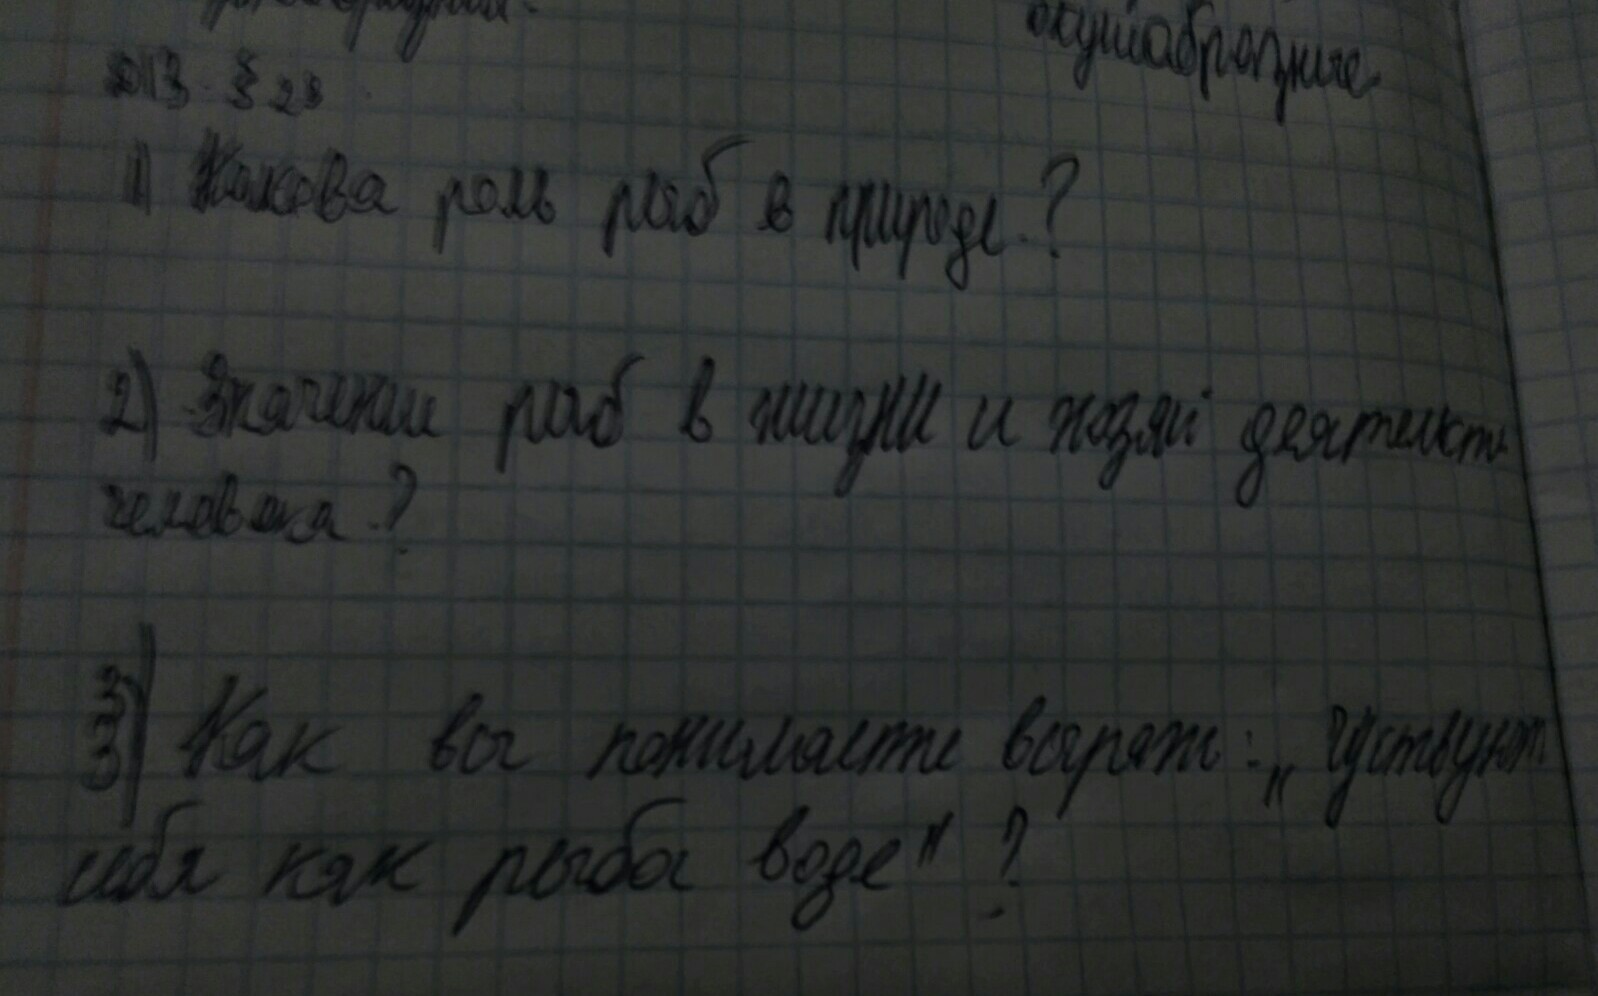 окунеобразные.
Д/З. § 28
1) Какова роль рыб в природе.?
2) Значении рыб в жизни и хозяй деятельст
человека.?
3) Как вы понимаете выраж: „чуствуют
себя как рыба воде" ?